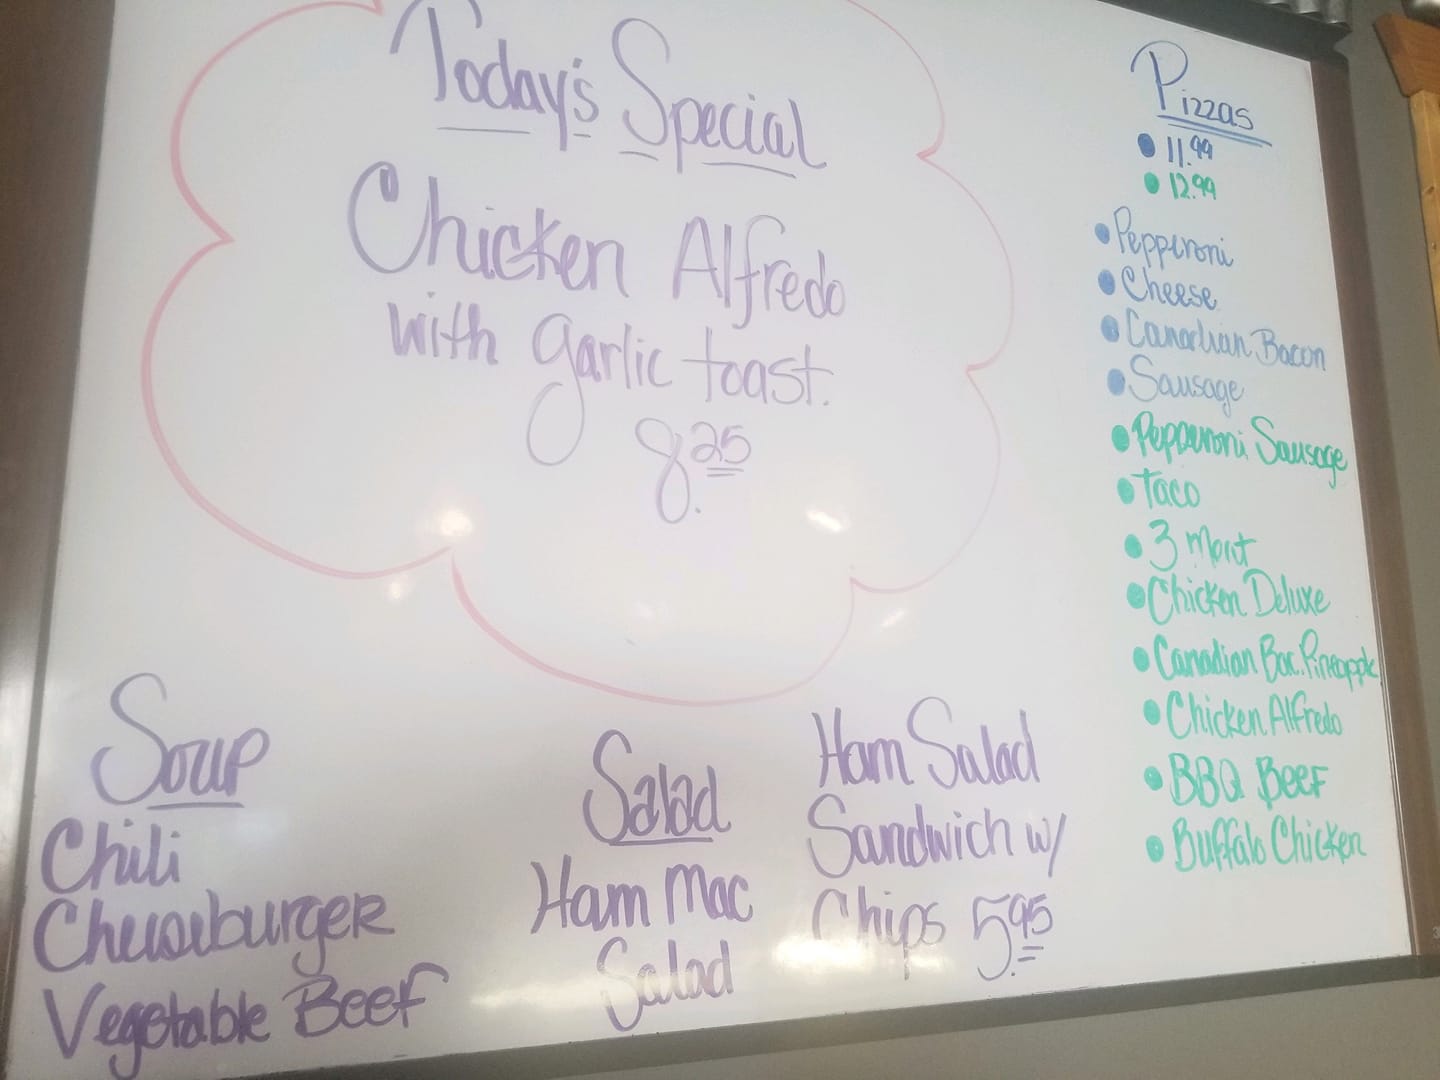 Today's Special
Chicken Alfredo
with garlic toast.
8.25
Soup
Chili
Cheeseburger
Vegetable Beef
Salad
Ham Mac
Salad
Ham Salad
Sandwich w/
Chips 5.95
Pizzas
• 11.99
• 12.99
• Pepperoni
• Cheese
• Canadian Bacon
• Sausage
• Pepperoni Sausage
• Taco
• 3 Meat
• Chicken Deluxe
• Canadian Bac. Pineapple
• Chicken Alfredo
• BBQ Beef
• Buffalo Chicken